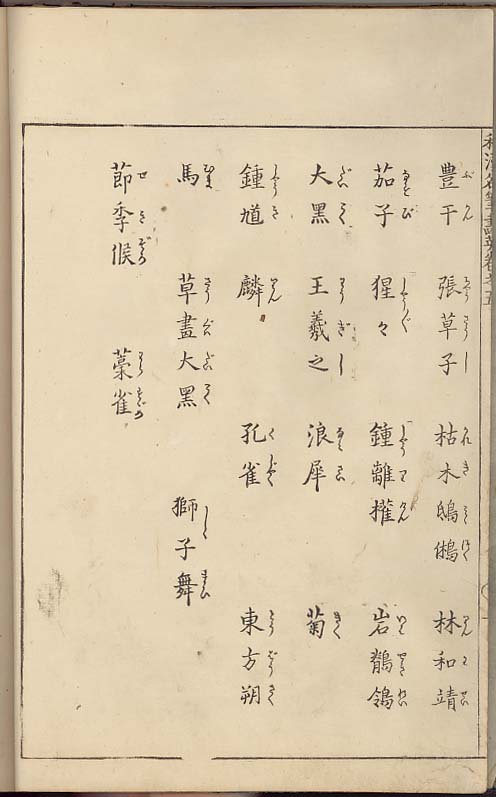 和漢名筆畫英卷之五
豊干 張草子 枯木鴟鵂 林和靖
茄子 猩々 鍾離權 岩鶺鴒
大黑 王羲之 浪犀 菊
鍾馗 麟 孔雀 東方朔
馬 草畫大黑 獅子舞
節季候 藁雀